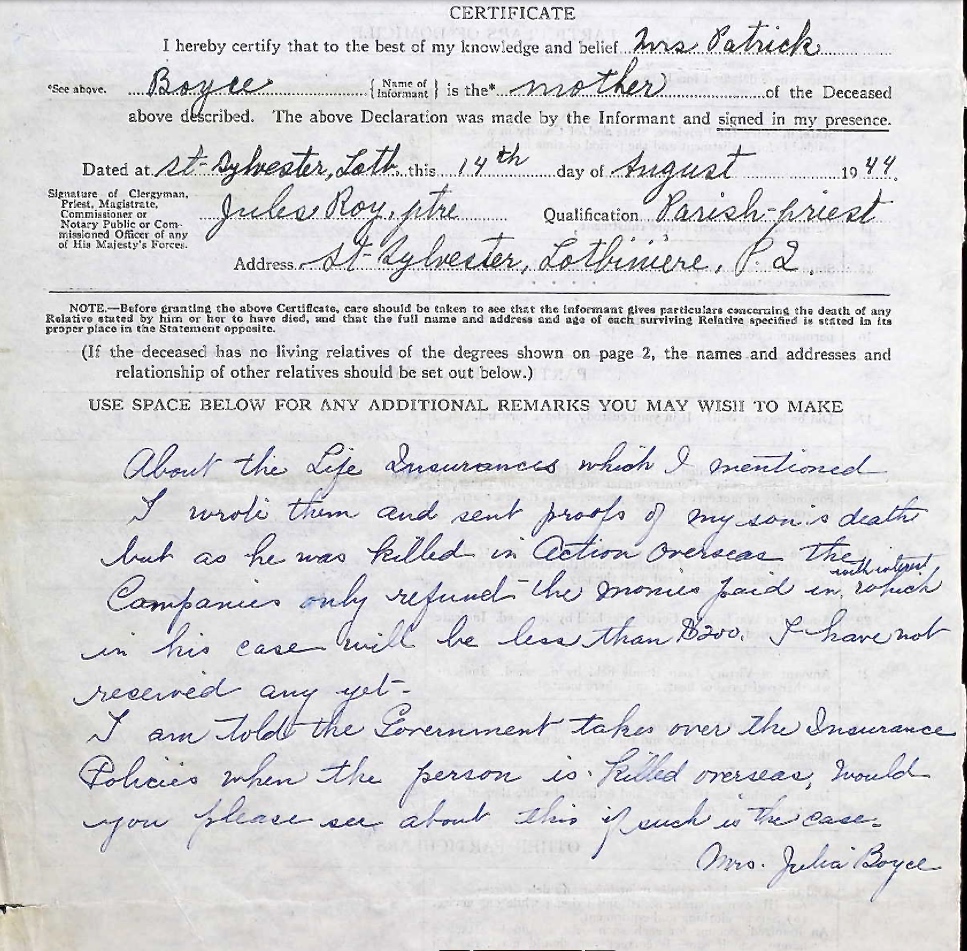 CERTIFICATE
I hereby certify that to the best of my knowledge and belief Mrs Patrick
*See above. Boyce { Name of Informant } is the* mother of the Deceased
above described. The above Declaration was made by the Informant and signed in my presence.
Dated at St-Sylvester, Lotb. this 14th day of August 1944.
Signature of Clergyman,
Priest, Magistrate,
Commissioner or
Notary Public or Com-
missioned Officer of any
of His Majesty's Forces.
Jules Roy, ptre Qualification Parish-priest
Address St-Sylvester, Lotbinière, P.Q.
NOTE.—Before granting the above Certificate, care should be taken to see that the informant gives particulars concerning the death of any
Relative stated by him or her to have died, and that the full name and address and age of each surviving Relative specified is stated in its
proper place in the Statement opposite.
(If the deceased has no living relatives of the degrees shown on page 2, the names and addresses and
relationship of other relatives should be set out below.)
USE SPACE BELOW FOR ANY ADDITIONAL REMARKS YOU MAY WISH TO MAKE
About the Life Insurances which I mentioned
I wrote them and sent proofs of my son's death
but as he was killed in Action overseas the
Companies only refund the monies paid in with interest which
in his case will be less than $200. I have not
received any yet-
I am told the Government takes over the Insurance
Policies when the person is killed overseas, Would
you please see about this if such is the case.
Mrs. Julia Boyce